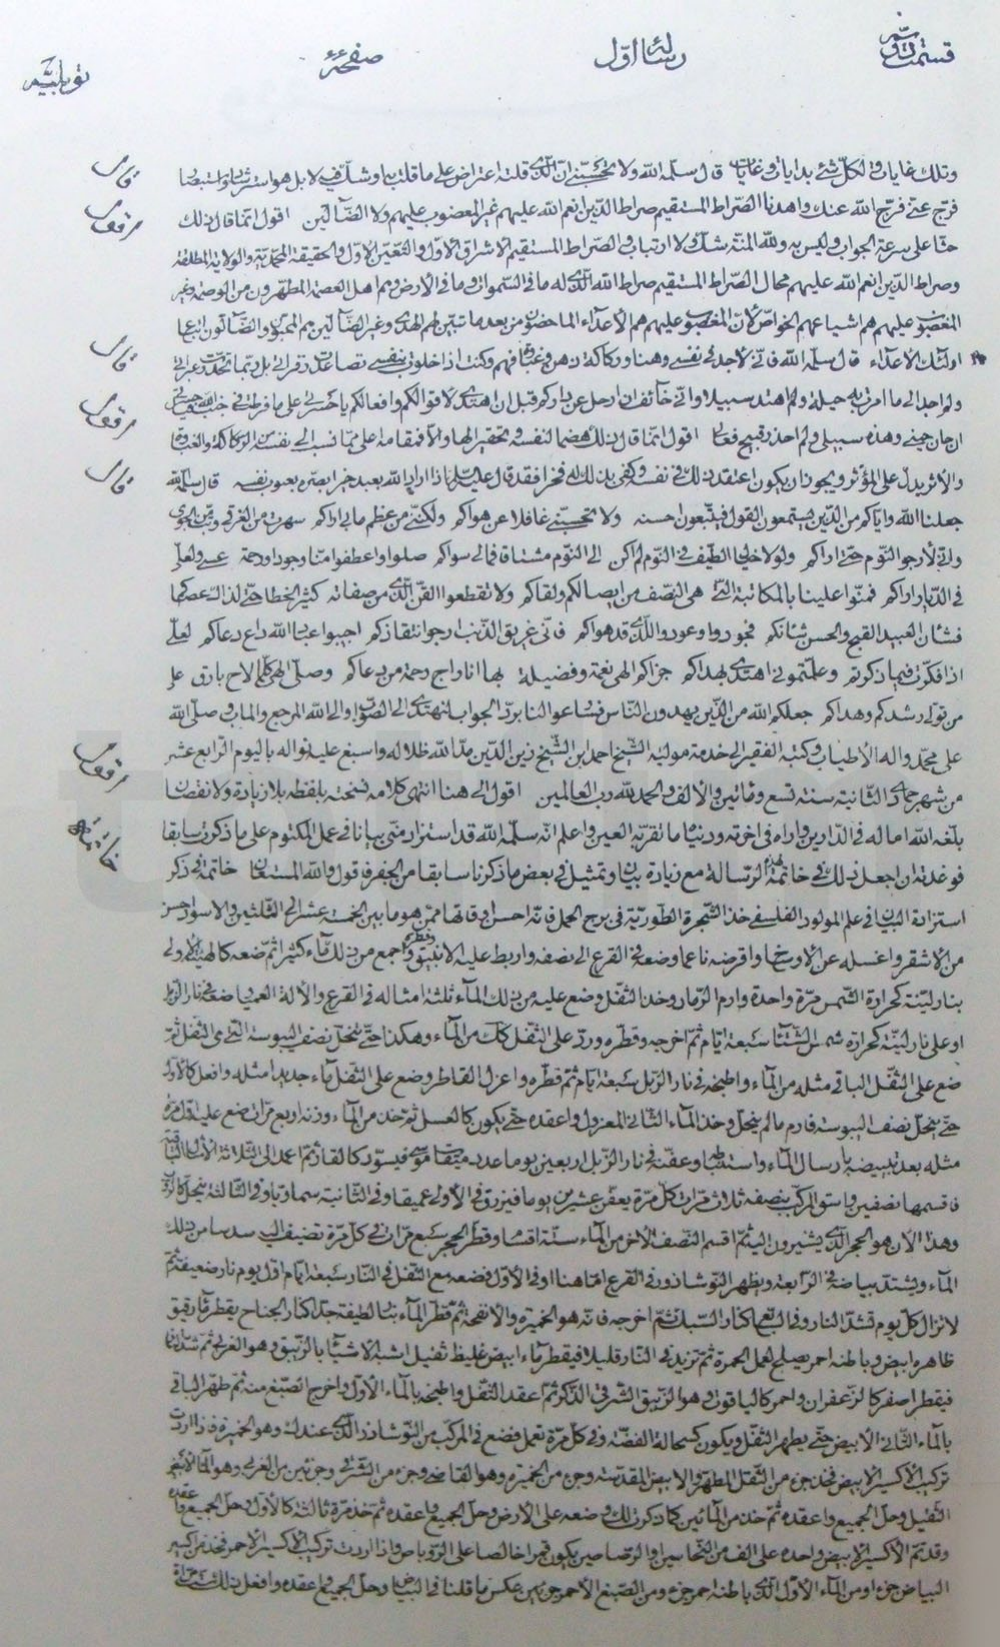 قسمت دوم رسالهٔ اوّل صفحهٔ توبلیّه
وتلك غايات ولكلّ شئ بدايات وغايات قال سلّمه الله ولا تحسبنى انّ الّذى قلته اعتراض على ما قلت بل هو استرشاد واستبصار قال
فرّج عنّى فرّج الله عنك واهدنا الصّراط المستقيم صراط الّذين انعم الله عليهم غير المغضوب عليهم ولا الضّالّين اقول انّما قال ذلك مرقوم
حثّا على سرعة الجواب وليس به ولله المنّة شكّ ولا ارتياب والصّراط المستقيم الاشراق الاوّل والتعيّن الاوّل والحقيقة المحمّديّة والولاية المطلقة
وصراط الّذين انعم الله عليهم محالّ الصّراط المستقيم صراط الله الّذى له ما فى السّموات وما فى الارض وهم اهل العصمة المطهّرون من الوصمة وغير
المغضوب عليهم هم اشياعهم الخواصّ لأنّ المغضوب عليهم هم الأعداء الماحضون من بعد ما تبيّن لهم الهدى وغير الضّالّين هم المحبّون والضّالّون اتباع
اولئك الأعداء قال سلّمه الله فانّى لاجد فى نفسى وهنا وركاكة ذهن وكنت اذا خلوت بنفسى تصاعدت زفراتى بل ربّما تحدّرت عبراتى قال
ولم اجد الى ما امرت به حيلة ولم اهتد سبيلا وانّى خائف ان ارحل عن دياركم قبل ان اهتدى لاقوالكم وافعالكم يا حسرتى على ما فرّطت فى جنب الله
وهذه سبيلى ولم احذر قبيح فعالى اقول انّما قال ذلك هضما لنفسه وتحقيرا لها والّا فمقامه اعلى ممّا نسب الى نفسه من الركاكة مرقوم
والأثر يدلّ على المؤثّر ويجوز ان يكون اعتقد ذلك فى نفسه وكفى بذلك له فخرا فقد قال عليه السّلم اذا اراد الله بعبد خيرا بصّره بعيوب نفسه قال سلّمه الله قال
جعلنا الله وايّاكم من الّذين يستمعون القول فيتّبعون احسنه ولا تحسبنى غافلا عن هواكم ولكنّنى من عظم ما بى اراكم سهرت من الفرقة
وانّى لأرجو النّوم حتّى اراكم ولولا خيال الطّيف فى النّوم لم اكن الى النّوم مشتاقا فما لى سواكم صلوا واعطفوا امنّا وجودا ورحمة عسى ولعلّى
فى الدّيار اراكم فمنّوا علينا بالمكاتبة الّتى هى النّصف من ايصالكم ولقاكم ولا تقطعوا القنّ الّذى من صفاته كثير الخطا
فشأن العبيد القبح والحسن شأنكم فجودوا وعودوا للّذى قد هواكم فانّى غريق الذّنب ارجو انتقاذكم اجيبوا عباد الله داع دعاكم لعلّى
اذا فكّرت فيما ذكرتم وعلّمتمونى اهتدى بهداكم جزاكم الهى نعمة وفضيلة بها انا راج رحمة من دعاكم وصلّى الهى كلّما لاح بارق على
من تولّى رشدكم وهداكم جعلكم الله من الّذين يهدون النّاس فساعوا لنا بردّ الجواب لنهتدى الى الصّواب والى الله المرجع والمآب وصلّى الله
على محمّد وآله الأطياب وكتبه الفقير الى خدمة موليه الشّيخ احمد ابن الشّيخ زين الدّين مدّ الله ظلاله واسبغ عليه نواله باليوم الرّابع عشر
من شهر جمادى الثّانية سنة تسع ومأتين والألف والحمد لله ربّ العالمين اقول الى هنا انتهى كلامه نسخته بلفظه بلا زيادة ولا نقصان مرقوم
بلّغه الله آماله فى الدّارين واراه فى آخرته ودنياه ما تقرّ به العين واعلم انّه سلّمه الله قد استزاد منّى بيانا فى عمل المكتوم على ما ذكرت سابقا
فوعدته ان اجعل ذلك فى خاتمة هذه الرّسالة مع زيادة بيان وتمثيل فى بعض ما ذكرنا سابقا من الجفر فاقول والله المستعان خاتمة فى ذكر خاتمة
استزادة البيان فى علم المولود الفلسفى خذ الشّجرة الطّوريّة فى برج الحمل فانّه احسن اوقاتها ممّن هو ما بين الخمسة عشر الى الثّلثين الاسود احسن
من الأشقر واغسله عن الاوساخ واقرضه ناعما وضعه فى القرع الى نصفه واربط عليه الانبيق واجمع من ذلك ماء كثيرا ثمّ ضعه كالهيئة الاولى
بنار ليّنة كحرارة الشّمس مرّة واحدة وارم الرّماد وخذ الثّفل وضع عليه من ذلك الماء ثلثة امثاله فى القرع والآلة العمياء ضعه فى نار الزّبل
او على نار ليّنة كحرارة شمس الشّتاء سبعة ايّام ثمّ اخرجه وقطّره وردّ على الثّفل كذلك من الماء وهكذا حتّى ينحلّ نصف اليبوسة الّتى هى الثّفل ثمّ
ضع على الثّفل الباقى مثله من الماء واطبخه فى نار الزّبل سبعة ايّام ثمّ قطّره واعزل القاطر وضع على الثّفل ماء جديدا مثله وافعل كالأوّل
حتّى ينحلّ نصف اليبوسة فارم ما لم ينحلّ وخذ الماء الثّانى المعزول واعقده حتّى يكون كالعسل ثمّ خذ من الماء وزنه اربع مرّات ضع عليه اوّل مرّة
مثله بعد تبييضه بارسال الماء واستقطابه وعفّنه فى نار الزّبل اربعين يوما عدد ميقات موسى فيسودّ كالقار ثمّ اعمد الى الثّلاثة الأمثال الباقية
فاقسمها نصفين واسق المركّب بنصفه ثلاث مرّات كلّ مرّة يعفّن عشرين يوما فيزرقّ فى الأولى عميقا وفى الثّانية سماويّا وفى الثّالثة
وهذا الآن هو الحجر الّذى يشيرون اليه ثمّ اقسم النّصف الآخر من الماء ستّة اقسام وقطّر الحجر سبع مرّات فى كلّ مرّة تضيف اليه سدسا من ذلك
الماء ويشتدّ بياضه فى الرّابعة ويظهر النّوشادر فى القرع امّا هنا او فى الأوّل فضعه مع الثّفل فى النّار سبعة ايّام اوّل يوم نار ضعيفة ثمّ
لا تزال كلّ يوم تشدّ النّار وفى السّابع كنار السّبك ثمّ اخرجه فانّه هو الخميرة والانفحة ثمّ قطّر الماء بنار لطيفة جدّا كنار الجناح يقطر ماء رقيق
ظاهره ابيض وباطنه احمر يصلح لعمل الحمرة ثمّ تزيد فى النّار قليلا فيقطر ماء ابيض غليظ ثقيل اشبه الاشياء بالزّيبق وهو الغربىّ ثمّ شدّ النّار
فيقطر اصفر كالزّعفران واحمر كالياقوت وهو الزّيبق الشّرقىّ الذّكر ثمّ اعقد الثّفل واطبخه بالماء الأوّل واخرج الصّبغ منه ثمّ طهّر الباقى
بالماء الثّانى الأبيض حتّى يطهر الثّفل ويكون كسحالة الفضّة وفى كلّ مرّة تعمل فضع فى المركّب من النّوشادر الّذى عندك وهو الخميرة فاذا اردت
تركيب الأكسير الأبيض فخذ جزء من الثّفل المطهّر والأبيض المقدّسة وجزء من الخميرة وهو القاضى وجزء من الشّرقى وجزئين من الغربى وهو الماء الأبيض
الثّقيل وحلّ الجميع واعقده ثمّ خذ من المائين كما ذكرت لك وضعه على الأرض وحلّ الجميع واعقده ثمّ خذ مرّة ثالثة كالأوّل وحلّ الجميع واعقده
وقد تمّ الأكسير الأبيض واحده على الف من النّحاسين او الرّصاصين يكون قمرا خالصا على الرّوباص واذا اردت تركيب الأكسير الأحمر فخذ من اكسير
البياض جزء ومن الماء الأوّل الّذى باطنه احمر جزء ومن الصّبغ الأحمر جزئين عكس ما قلنا فى البياض وحلّ الجميع واعقده وافعل ذلك